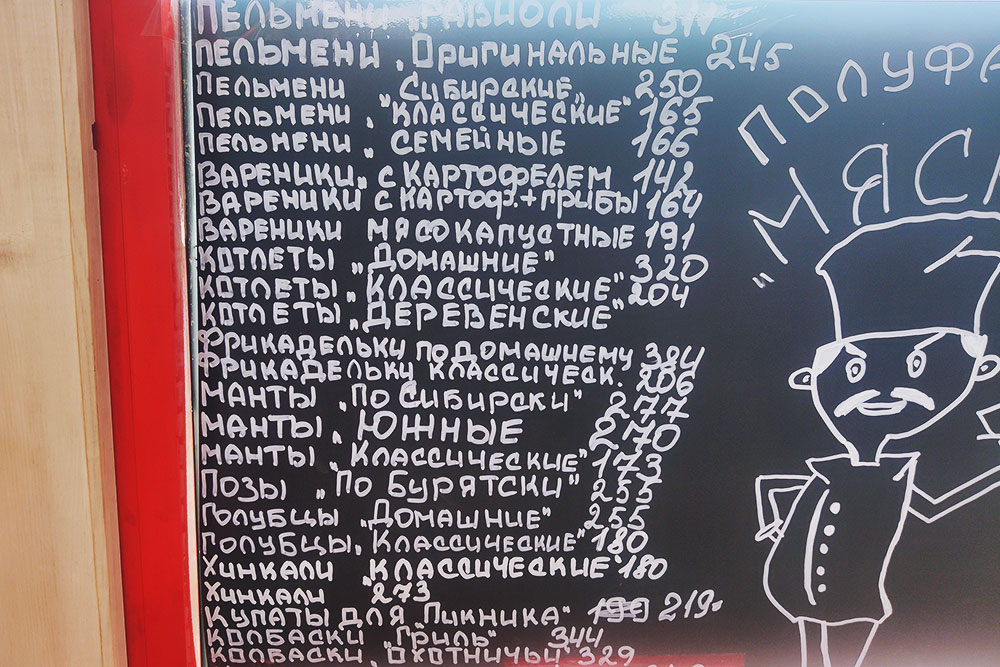 ПЕЛЬМЕНИ „РАВИОЛИ
ПЕЛЬМЕНИ „ОРИГИНАЛЬНЫЕ 245
ПЕЛЬМЕНИ „СИБИРСКИЕ„ 250
ПЕЛЬМЕНИ „КЛАССИЧЕСКИЕ" 165
ПЕЛЬМЕНИ „СЕМЕЙНЫЕ 166
ВАРЕНИКИ„ С КАРТОФЕЛЕМ 142
ВАРЕНИКИ С КАРТОФ.+ГРИБЫ 164
ВАРЕНИКИ МЯСОКАПУСТНЫЕ 191
КОТЛЕТЫ „ДОМАШНИЕ" 320
КОТЛЕТЫ „КЛАССИЧЕСКИЕ" 204
КОТЛЕТЫ „ДЕРЕВЕНСКИЕ"
ФРИКАДЕЛЬКИ ПОДОМАШНЕМУ 384
ФРИКАДЕЛЬКИ КЛАССИЧЕСК. 206
МАНТЫ „ПО СИБИРСКИ" 277
МАНТЫ „ЮЖНЫЕ 270
МАНТЫ „КЛАССИЧЕСКИЕ" 173
ПОЗЫ „ПО БУРЯТСКИ" 255
ГОЛУБЦЫ „ДОМАШНИЕ" 255
ГОЛУБЦЫ „КЛАССИЧЕСКИЕ" 180
ХИНКАЛИ „КЛАССИЧЕСКИЕ" 180
ХИНКАЛИ 273
КУПАТЫ ДЛЯ „ПИКНИКА" 199 219=
КОЛБАСКИ „ГРИЛЬ" 344
КОЛБАСКИ „ОХОТНИЧЬИ" 329
ПОЛУФА
„МЯС